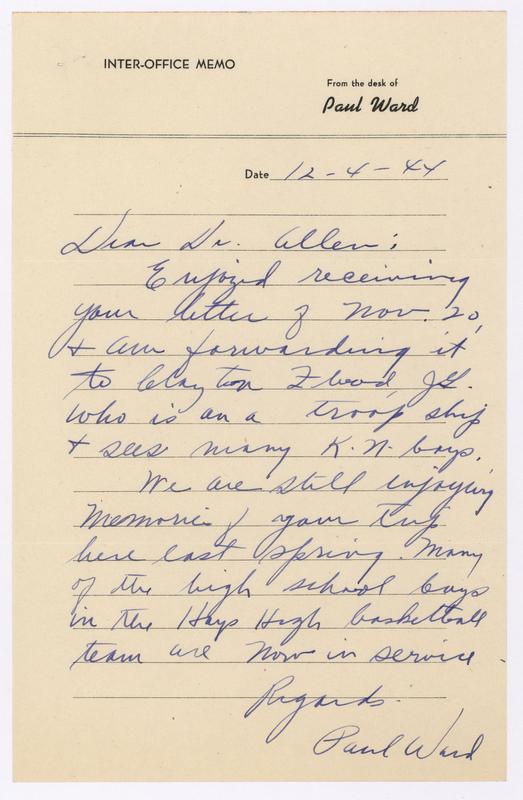 INTER-OFFICE MEMO
From the desk of
Paul Ward
Date 12-4-44
Dear Dr. Allen:
Enjoyed receiving
your letter of Nov. 20,
+ am forwarding it
to Clayton
who is on a troop ship
+ sees many K.U. boys.
We are still enjoying
memories of your trip
here last spring. Many
of the high school boys
in the Hays High basketball
team are now in service
Regards.
Paul Ward